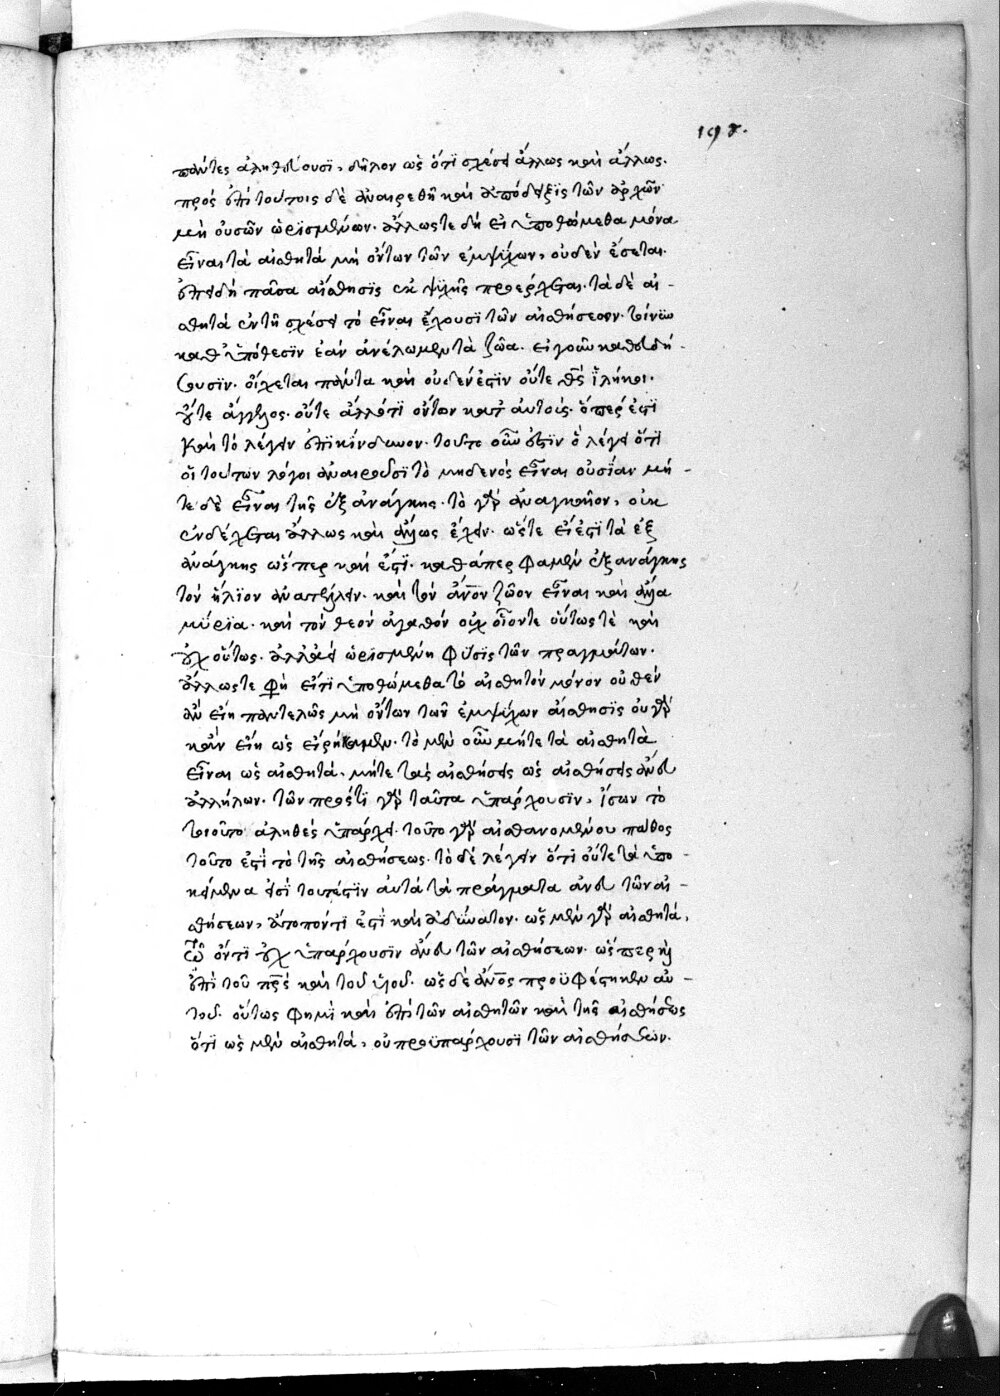 198.
πάντες ἀληθεύουσϊ, δῆλον ὡς ὅτϊ σχέσει ἄλλως καὶ ἄλλως.
πρὸς ἐπὶ τούτοις δὲ ἀναιρεθῆ καὶ ἀπόδειξϊς τῶν ἀρχῶν
μὴ οὐσῶν ὡρϊσμένων. ἄλλωςτε δὴ εἰ ὑποθώμεθα μόνα
εἶναι τὰ αἰσθητὰ μὴ ὄντων τῶν ἐμψύχων, οὐδὲν ἔσεται.
ἐπειδὴ πᾶσα αἴσθησϊς ἐκ ψϋχῆς προέρχεται. τὰ δὲ αἰ-
σθητὰ ἐν τῆ σχέσει τὸ εἶναι ἔχουσϊ τῶν αἰσθήσεων. τίνϋν
καθ ὑπόθεσϊν ἐὰν ἀνέλωμεν τὰ ζῶα. εἰ γοῦν καθϋ δὴ
οἴχεται πάντα καὶ οὐδέν ἐςϊν οὔτε θς
οὔτε ἄγγελος. οὔτε ἄλλό τϊ ὄντων κατ αὐτοὺς. ὅπερ ἐςϊ
καὶ τὸ λέγειν ἐπϊκίνδυνον. τοῦτο οὖν ἐςϊν ὃ λέγει ὅτϊ
οἱ τούτων λόγοι ἀναιροῦσϊ τὸ μηδενὸς εἶναι οὐσΐαν μή-
τε δὲ εἶναι τῆς ἐξ ἀνάγκης. τὸ γὰρ ἀναγκαῖον, οὐκ
ἐνδέχεται ἄλλως καὶ ἄλλως ἔχειν. ὥςτε εἰ ἔςϊ τὰ ἐξ
ἀνάγκης ὥςπερ καὶ ἔςϊ. καθάπερ φαμὲν ἐξ ἀνάγκης
τὸν ἥλϊον ἀνατέλλειν. καὶ τὸν ἄνον ζῶον εἶναι καὶ ἄλλα
μύρϊα. καὶ τὸν θεὸν ἀγαθὸν οὐχ οἷόντε οὕτως τὲ καὶ
οὐχ οὕτως. ἀλλὰ ὡρϊσμένη φύσϊς τῶν πραγμάτων.
ἄλλωςτε φὴ εἴτϊ ὑποθώμεθα τὸ αἰσθητὸν μόνον οὐθὲν
ἂν εἴη παντελῶς μὴ ὄντων τῶν ἐμψύχων αἴσθησϊς οὐ γὰρ
κἂν εἴη ὡς εἰρήκαμεν. τὸ μὲν οὖν μήτε τὰ αἰσθητὰ
εἶναι ὡς αἰσθητά. μήτε τὰς αἰσθήσεις ὡς αἰσθήσεις ἄνευ
ἀλλήλων. τῶν πρός τϊ γὰρ ταῦτα ὑπάρχουσϊν, ἴσων τὸ
τοιοῦτο ἀληθὲς ὑπάρχει. τοῦτο γὰρ αἰσθανομένου πάθος
τοῦτο ἐςὶ τὸ τῆς αἰσθήσεως. τὸ δὲ λέγειν ὅτϊ οὔτε τὰ ὑπο-
κείμενα εἰσὶ τουτέςϊν αὐτὰ τὰ πράγματα ἄνευ τῶν αἰ-
σθήσεων, ἄτοπόν τϊ ἐςὶ καὶ ἀδΰνατον. ὡς μὲν γὰρ αἰσθητά,
τῶ ὄντϊ οὐχ ὑπάρχουσϊν ἄνευ τῶν αἰσθήσεων. ὥςπερ καὶ
ἐπὶ τοῦ πρς καὶ τοῦ ϋἱοῦ. ὡς δὲ ἄνος προϋφέςηκεν αὐ-
τοῦ. οὕτως φημὶ καὶ ἐπὶ τῶν αἰσθητῶν καὶ τῆς αἰσθήσεως
ὅτϊ ὡς μὲν αἰσθητά, οὐ προϋπάρχουσϊ τῶν αἰσθήσεων.